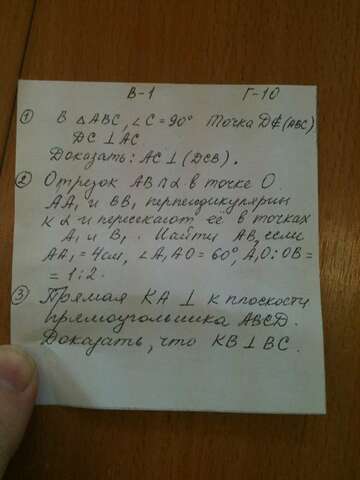 В-1 Г-10
① В △ABC, ∠C = 90° Точка D∉(ABC)
DC ⊥ AC
Доказать: AC ⊥ (DCB).
② Отрезок AB ∩ α в точке O.
AA₁ и BB₁ перпендикулярны
к α и пересекают её в точках
A₁ и B₁. Найти AB, если
AA₁ = 4см, ∠A₁AO = 60°, A₁O:OB =
= 1:2.
③ Прямая KA ⊥ к плоскости
прямоугольника ABCD.
Доказать, что KB ⊥ BC.